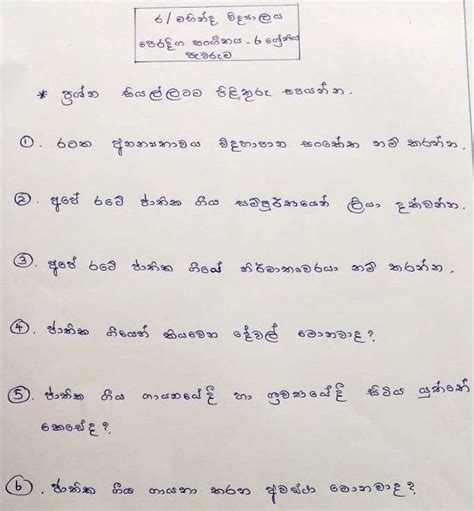 ර / මහින්ද විද්‍යාලය
පෙරදිග සංගීතය - 6 ශ්‍රේණිය
පැවරුම
* ප්‍රශ්න සියල්ලටම පිළිතුරු සපයන්න.
①. රටක අනන්‍යතාවය විදහාපාන සංකේත නම් කරන්න.
②. අපේ රටේ ජාතික ගීය සම්පූර්ණයෙන් ලියා දක්වන්න.
③. අපේ රටේ ජාතික ගීයේ නිර්මාතෘවරයා නම් කරන්න.
④. ජාතික ගීයෙන් කියවෙන දේවල් මොනවාද?
⑤. ජාතික ගීය ගායනයේදී හා ශ්‍රවණයේදී සිටිය යුත්තේ
කෙසේද?
⑥. ජාතික ගීය ගායනා කරන අවස්ථා මොනවාද?